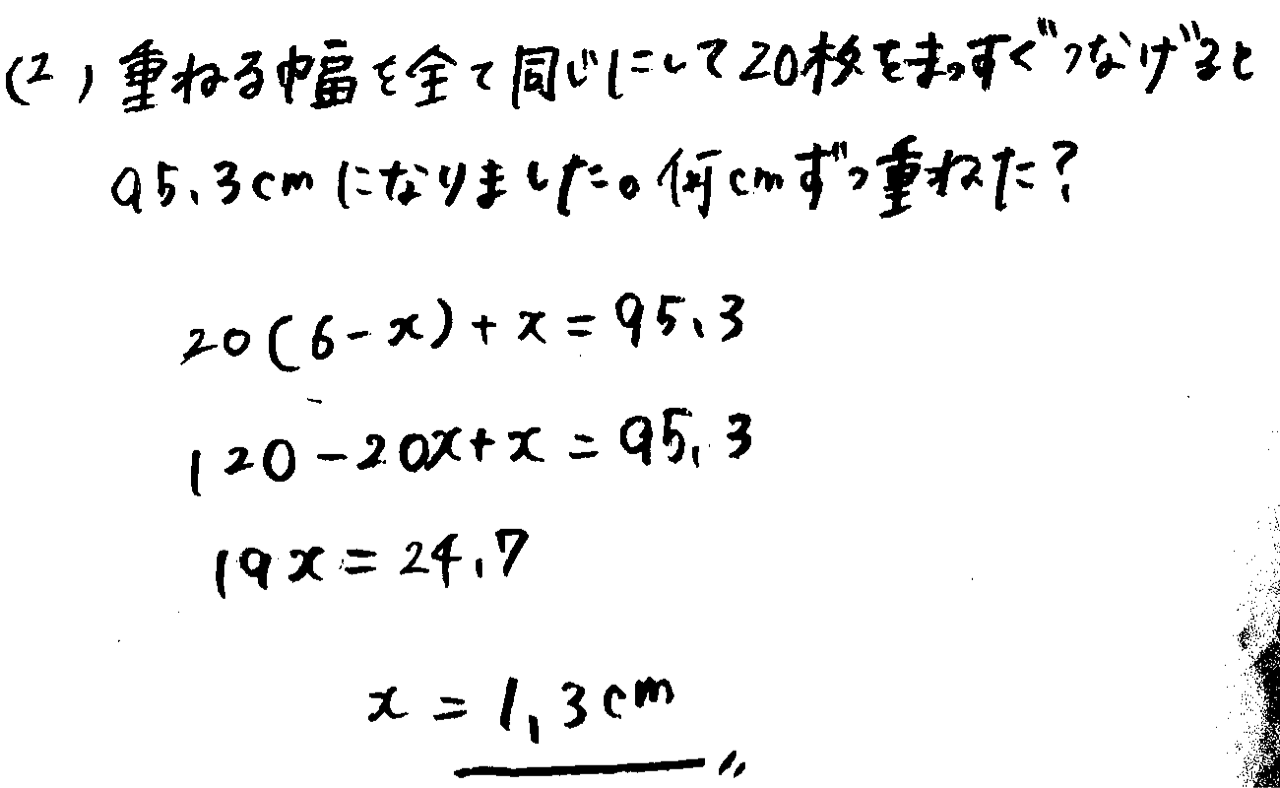 (2) 重ねる幅を全て同じにして20枚をまっすぐつなげると
95.3cmになりました。何cmずつ重ねた?
20(6-x)+x=95.3
120-20x+x=95.3
19x=24.7
x=1.3cm